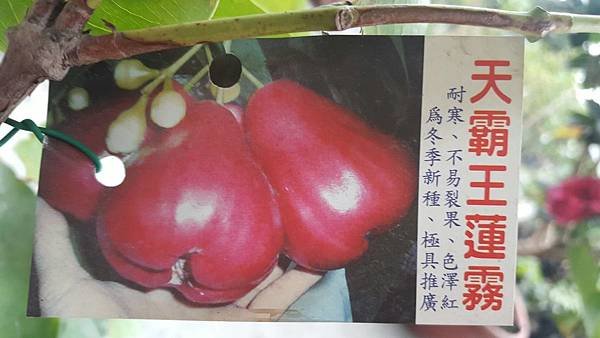 天霸王蓮霧
耐寒、不易裂果、色澤紅
爲冬季新種、極具推廣